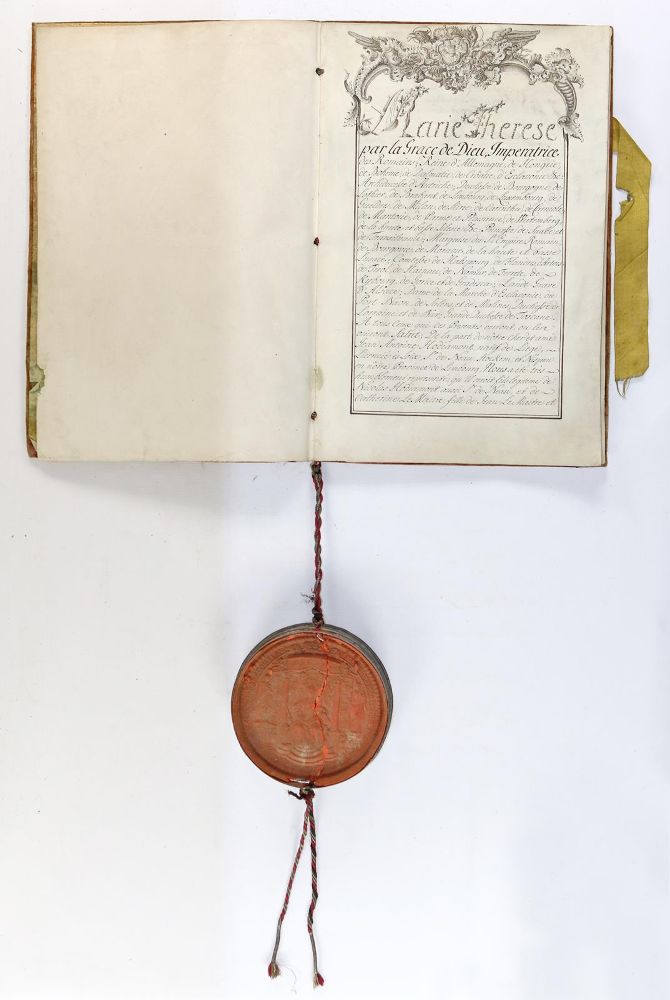 Marie Therese
par la Grace de Dieu, Imperatrice
des Romains, Reine d'Allemagne, de Hongrie,
de Boheme, de Dalmatie, de Croatie, d'Esclavonie &c.
Archiduchesse d'Autriche, Duchesse de Bourgogne, de
Lothier, de Brabant, de Limbourg, de Luxembourg, de
Gueldres, de Milan, de Stirie, de Carinthie, de Carniole
de Mantoue, de Parme et Plaisance, de Wirtemberg,
de la haute et basse Silesie &c. Princesse de Suabe et
de Transilvanie, Marquise du St. Empire Romain,
de Bourgovie, de Moravie, de la haute et basse
Lusace, Comtesse de Habsbourg, de Flandres, d'Artois
de Tirol, de Hainau, de Namur, de Ferrete, de
Kybourg, de Gorice et de Gradisca, Landt-Grave
d'Alsace, Dame de la Marche d'Esclavonie, du
Port Naon, de Salins, et de Malines, Duchesse de
Lorraine et de Bar, Grande Duchesse de Toscane.
A tous ceux qui ces presentes verront ou lire
oiront, Salut; De la part de notre cher et amé
Jean Antoine natif de Liege,
Licencié ès Loix, Sr. de et
en notre de Limbourg, Nous a été tres-
humblement representé, qu'il fils légitime de
Nicolas avec Sr. de et de
Catherine Le Maitre, fille de Jean Le Maitre et